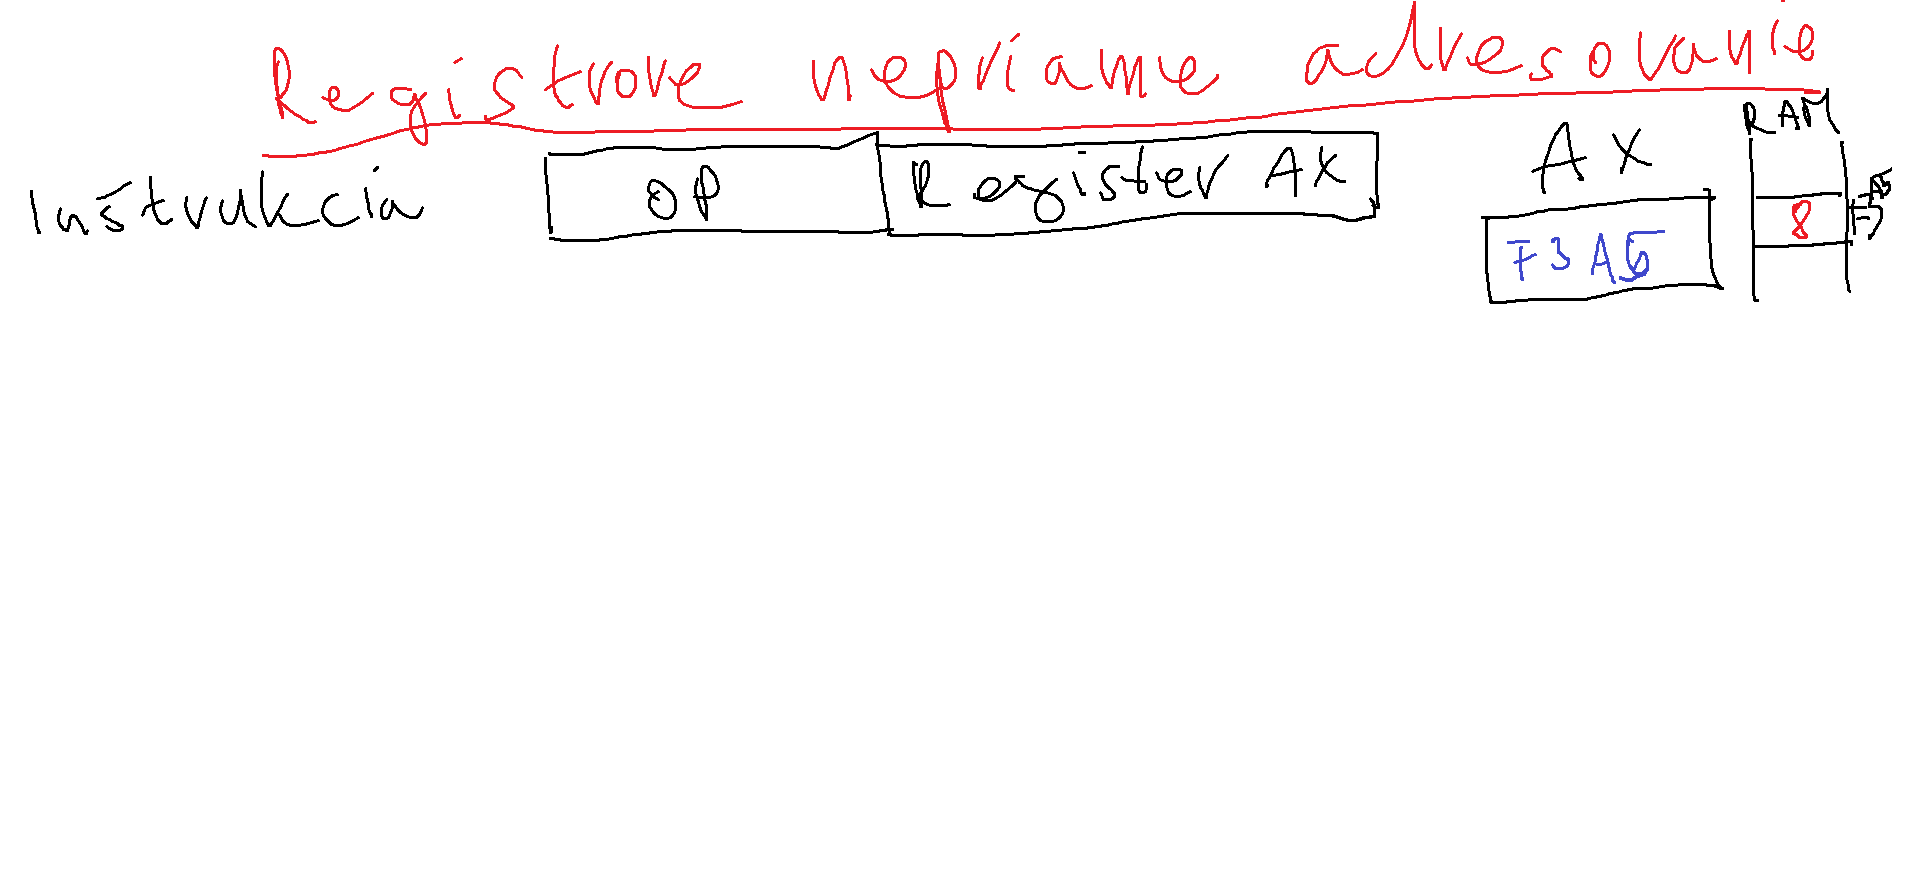 Registrove nepriame adresovanie
RAM
Inštrukcia OP Register AX AX
8
F3A5